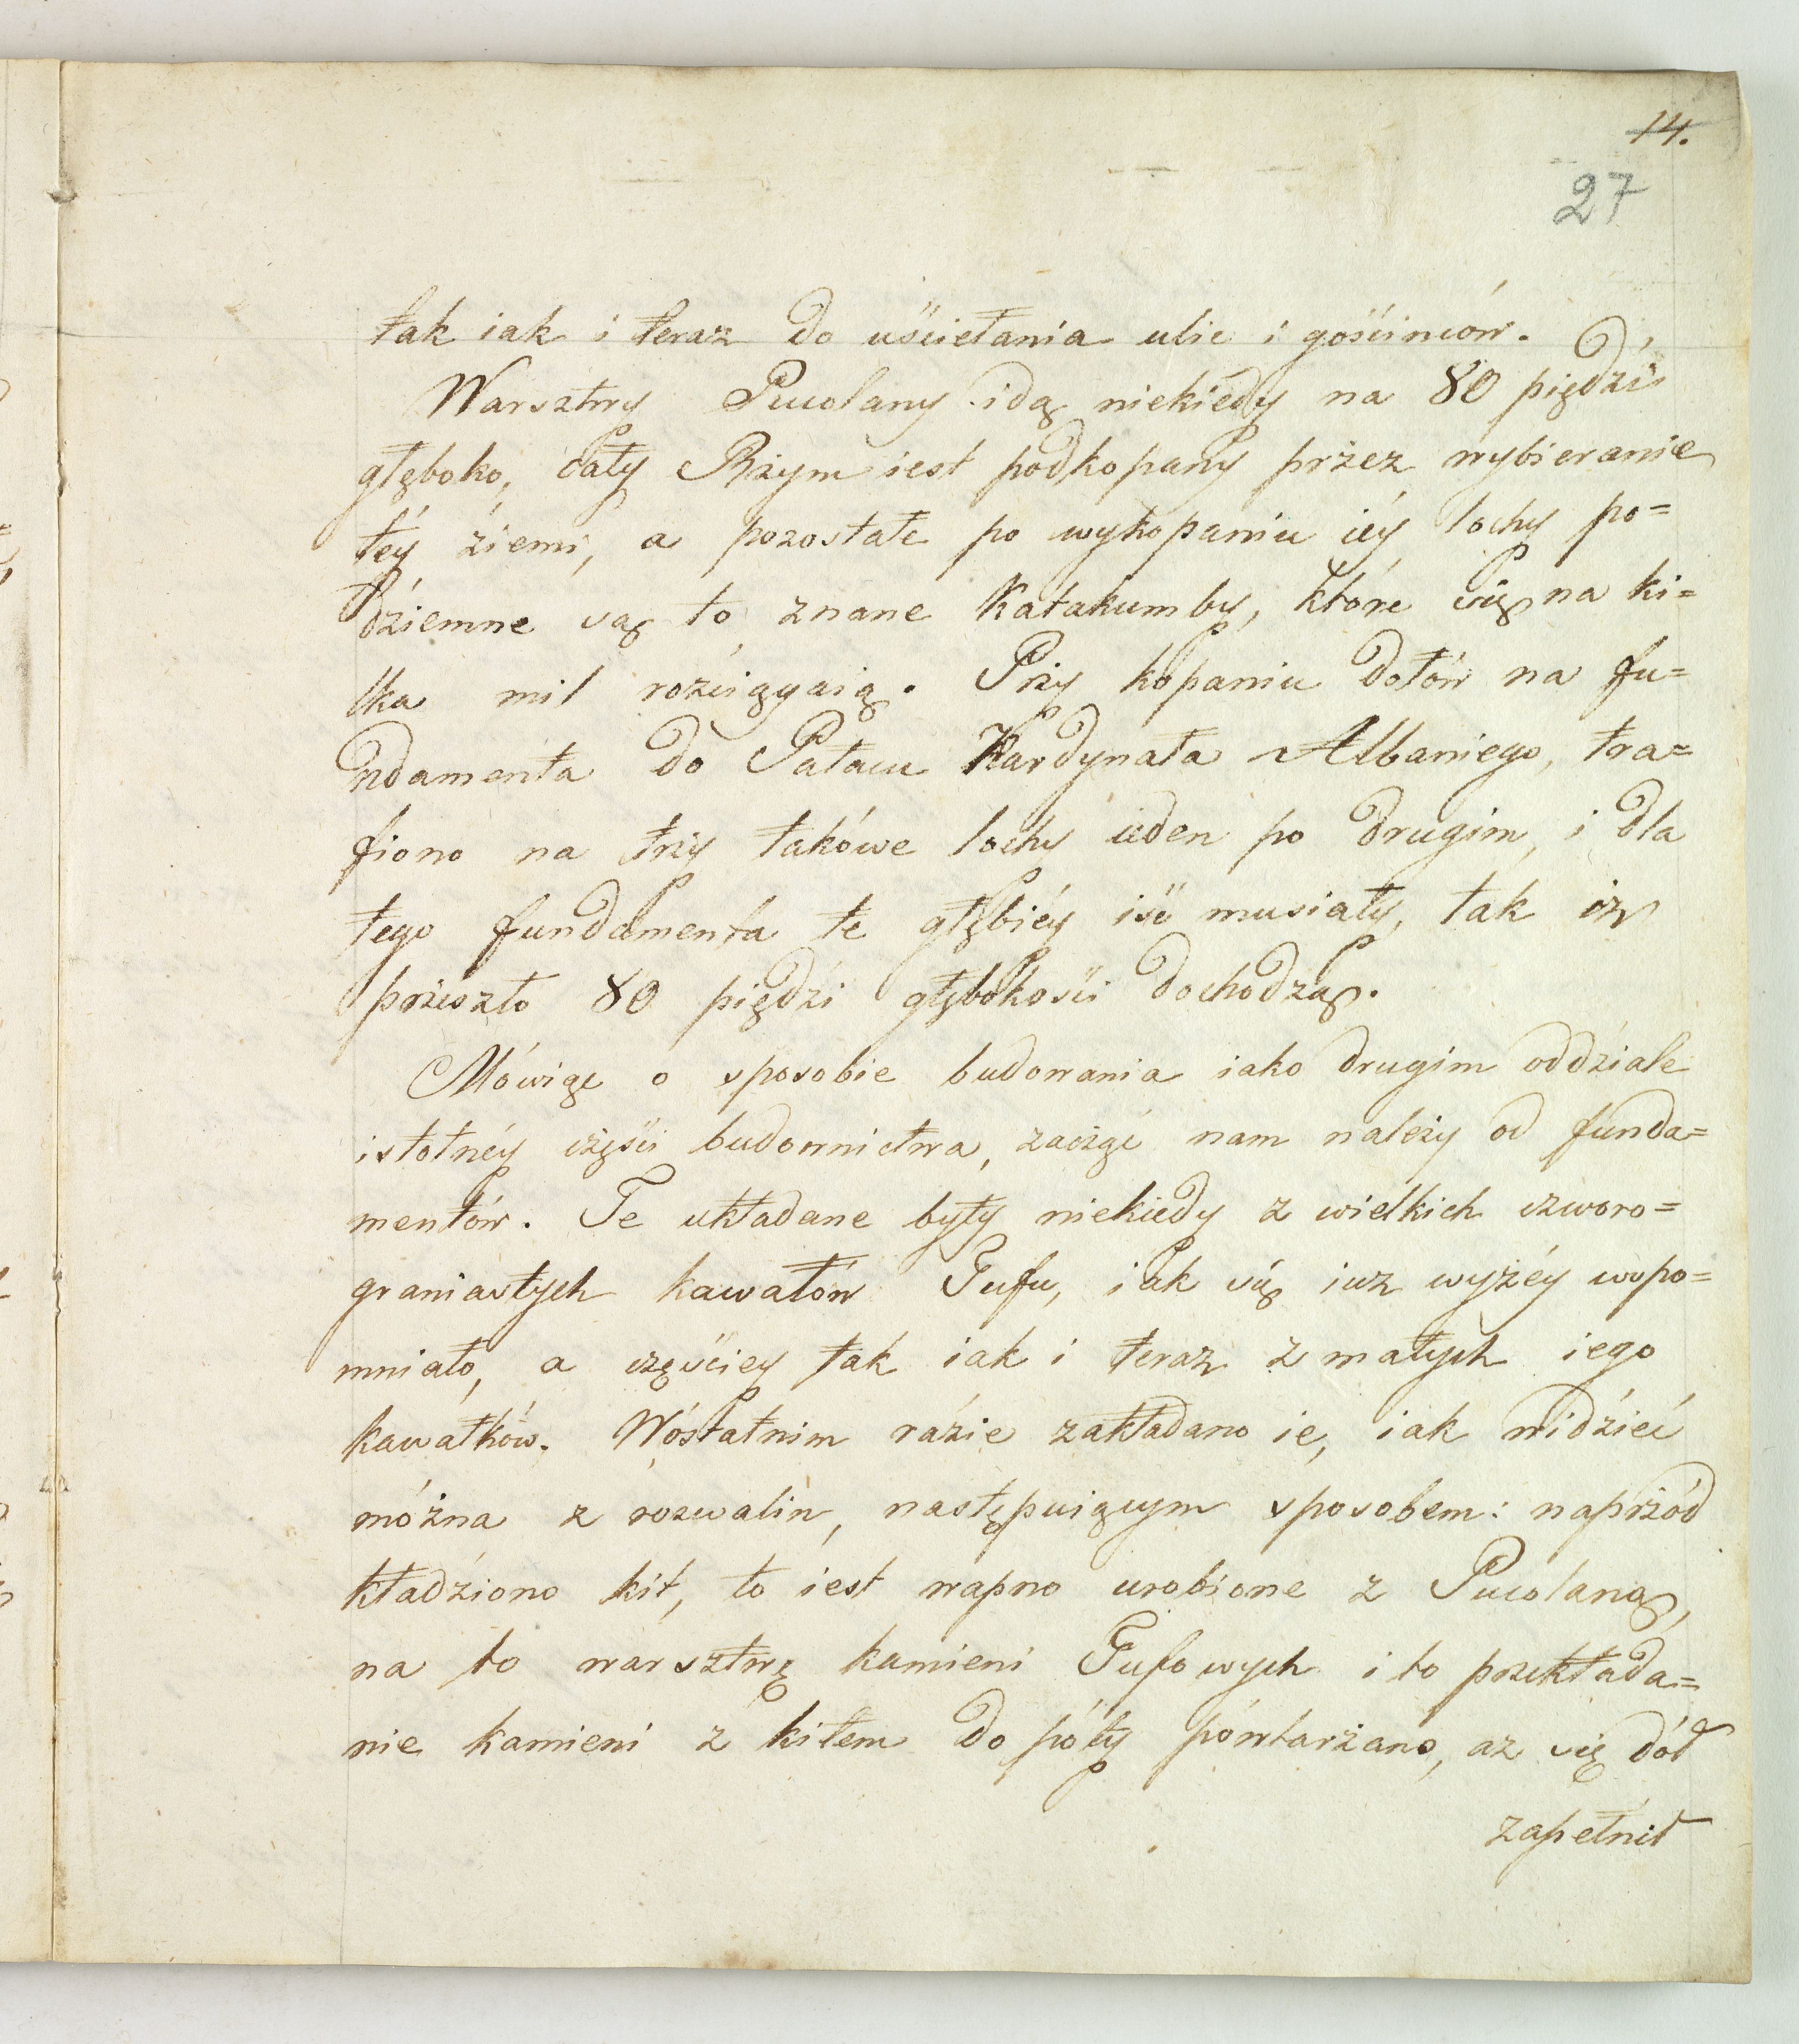 14.
27
tak iak i teraz do uściełania ulic i gościnców.
Warsztwy Pucolany idą niekiedy na 80 piędzi
głęboko, cały Rżym iest podkopany przez wybieranie
téy żiemi, a pozostałe po wykopaniu iéy lochy po=
dźiemne są to znane Katakumby, które się na ki=
lka mil rozciągaią. Przy kopaniu dołów na fu=
ndamenta do Pałacu Kardynała Albaniego, tra=
fiono na trzy takówe lochy ieden po drugim, i dla
tego fundamenta te głębiéy iść musiały, tak iż
przeszło 80 piędźi głębokości dochodzą.
Mówiąc o sposobie budowania iako drugim oddźiale
istotnéy części budownictwa, zacząć nam należy od funda=
mentów. Te układane były niekiedy z wielkich czworo=
graniastych kawałów Tufu, iak się iuz wyżéy wspo=
mniało, a częściey tak iak i teraz z małych iego
kawałków. Wostatnim razie zakładano ie, iak widźieć
można z rozwalin, następuiącym sposobem: naprzód
kładźiono kit, to iest wapno urobione z Pucolaną,
na to warsztwę kamieni Tufowych i to przekłada=
nie kamieni z kitem do póty powtarzano, az się dół
zapełnił